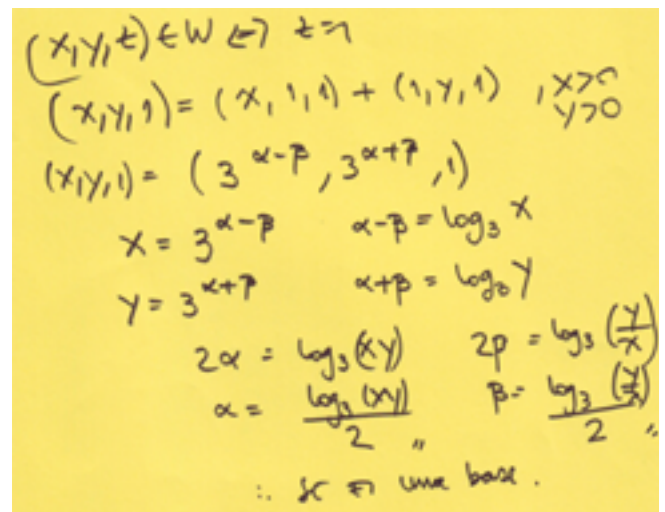 (x,y,t) ∈ W ⟺ t=1
(x,y,1) = (x,1,1) + (1,y,1) , x>0
y>0
(x,y,1) = (3^{α-β}, 3^{α+β}, 1)
x = 3^{α-β} α-β = log₃ x
y = 3^{α+β} α+β = log₃ y
2α = log₃(xy) 2β = log₃(y/x)
α = log₃(xy)/2 〃 β = log₃(y/x)/2 〃
∴ é uma base.